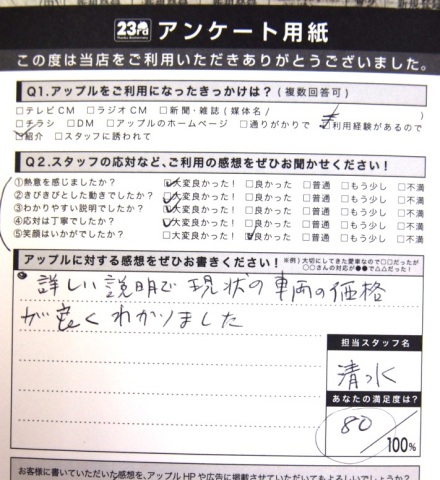 23rd アンケート用紙
この度は当店をご利用いただきありがとうございました。
Q1.アップルをご利用になったきっかけは？(複数回答可)
□テレビCM □ラジオCM □新聞・雑誌(媒体名/ )
□チラシ □DM □アップルのホームページ □通りがかりで □利用経験があるので
□紹介 □スタッフに誘われて
Q2.スタッフの応対など、ご利用の感想をぜひお聞かせください！
①熱意を感じましたか？ □大変良かった！ □良かった □普通 □もう少し □不満
②きびきびとした動きでしたか？ □大変良かった！ □良かった □普通 □もう少し □不満
③わかりやすい説明でしたか？ □大変良かった！ □良かった □普通 □もう少し □不満
④応対は丁寧でしたか？ □大変良かった！ □良かった □普通 □もう少し □不満
⑤笑顔はいかがでしたか？ □大変良かった！ □良かった □普通 □もう少し □不満
アップルに対する感想をぜひお書きください！
※例)大切にしてきた愛車なので□□だったが
○○さんの対応が●●で△△だった！
詳しい説明で現状の車両の価格
が良くわかりました
担当スタッフ名
清水
あなたの満足度は？
80/100%
お客様に書いていただいた感想を、アップルHPや広告に掲載させていただいてもよろしいでしょうか？